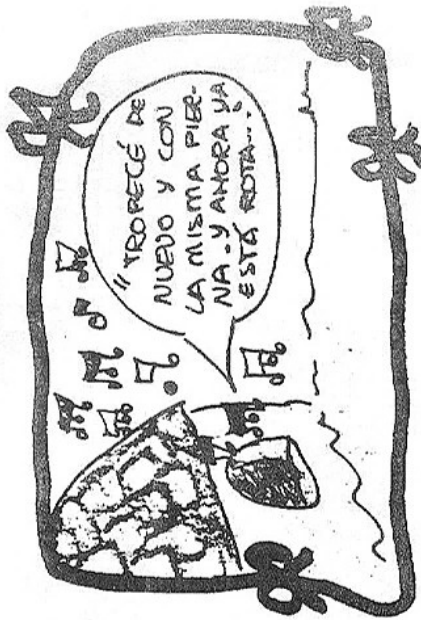 "TROPECÉ DE
NUEVO Y CON
LA MISMA PIER-
NA. Y AHORA YA
ESTÁ ROTA...